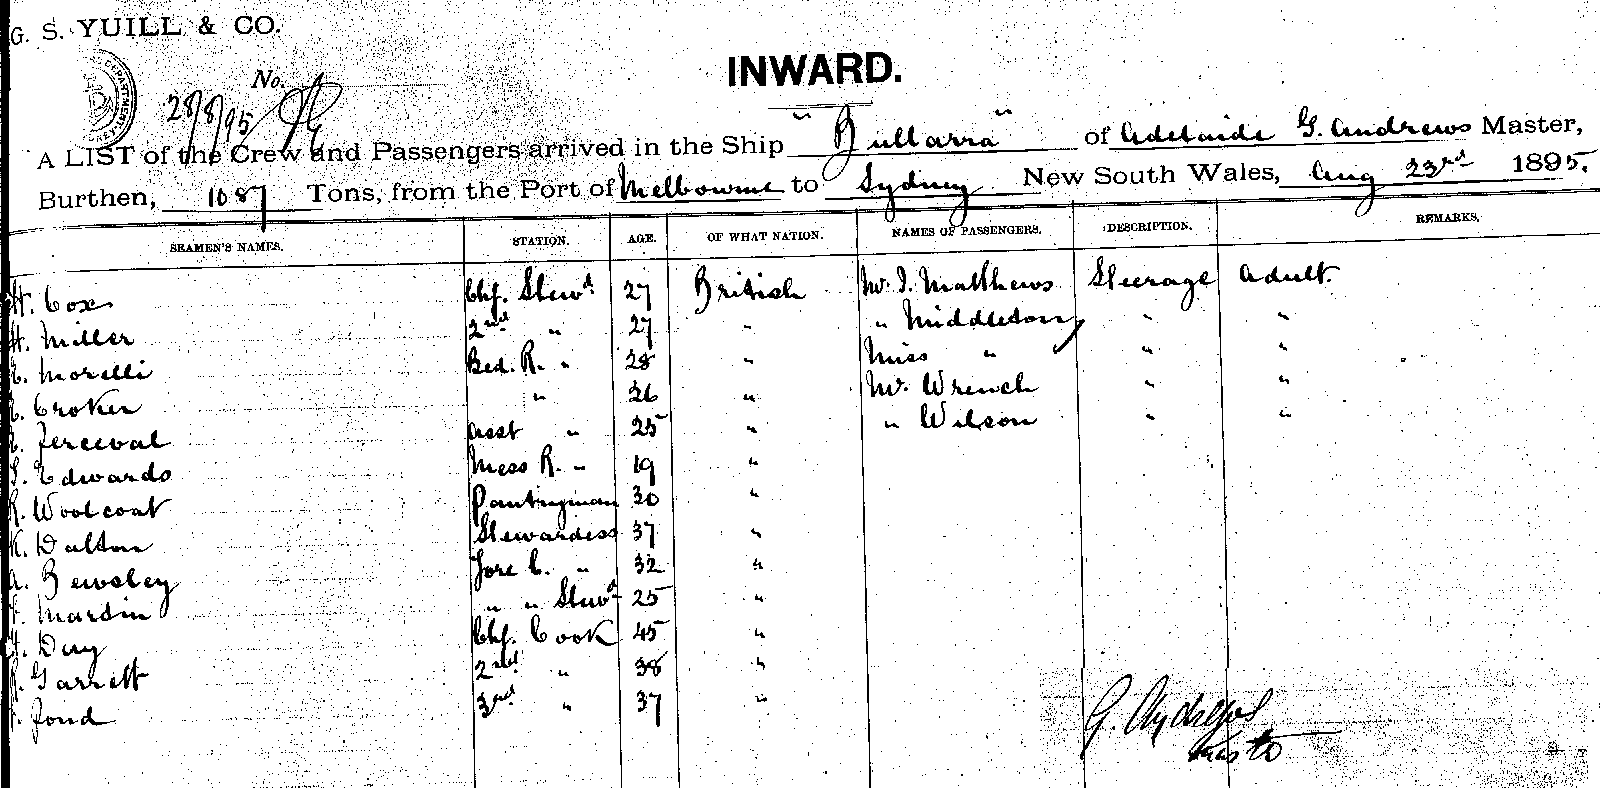 G. S. YUILL & CO.
INWARD.
No.
28/8/95
A LIST of the Crew and Passengers arrived in the Ship "Bullarra" of Adelaide G. Andrews Master,
Burthen, 1087 Tons, from the Port of Melbourne to Sydney New South Wales, Aug 23rd 1895.
SEAMEN'S NAMES. STATION. AGE. OF WHAT NATION. NAMES OF PASSENGERS. DESCRIPTION. REMARKS.
H. Cox Chf. Stewd 27 British Mr. I. Matthews Steerage Adult.
H. Miller 2nd " 27 " " Middleton " "
Morelli Bed. R. " 28 " Miss " " "
Croker " 26 " Mr. Wrench " "
Perceval Asst " 25 " " Wilson " "
Edwards Mess R. " 19 "
R. Woolcoat Pantryman 30 "
K. Dalton Stewardess 37 "
A. Bewsley Fore C. " 32 "
Mardin " " Stewd 25 "
Duy Chf. Cook 45 "
Garrett 2nd " 38 "
Fond 3rd " 37 "
G. Andrews
Master